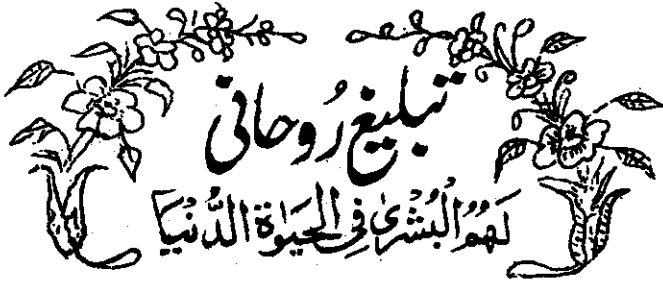 تبلیغ رُوحانی
لَهُمُ الْبُشْرٰی فِی الْحَیَوٰۃِ الدُّنْیَا